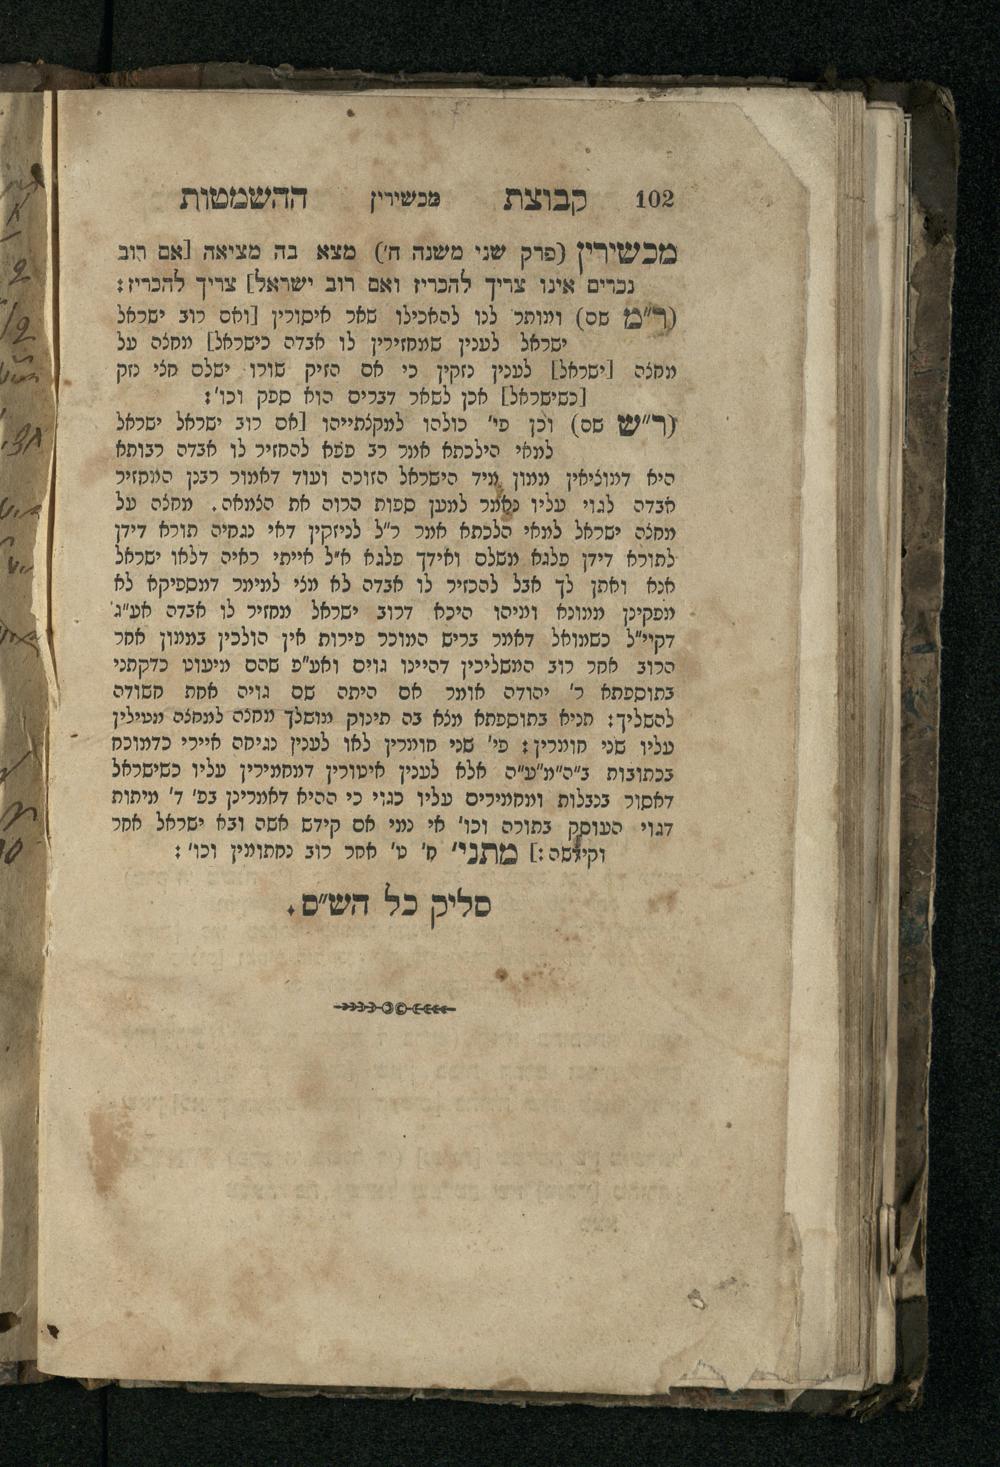 102 קבוצת מכשירין ההשמטות
מכשירין (פרק שני משנה ח') מצא בה מציאה [אם רוב
נכרים אינו צריך להכריז ואם רוב ישראל] צריך להכריז:
(ר"מ שם) ומותר לנו להאכילו שאר איסורין [ואם רוב ישראל
ישראל לענין שמחזירין לו אבדה כישראל] מחצה על
מחצה [ישראל] לענין נזקין כי אם הזיק שורו ישלם חצי נזק
[כשישראל] אכן לשאר דברים הוא ספק וכו':
(ר"ש שם) וכן פי' כולהו למקצתייהו [אם רוב ישראל ישראל
למאי הילכתא אמר רב פפא להחזיר לו אבדה רבותא
היא דמוציאין ממון מיד הישראל הזוכה ועוד דאמור רבנן המחזיר
אבדה לגוי עליו נאמר למען ספות הרוה את הצמאה. מחצה על
מחצה ישראל למאי הלכתא אמר ר"ל לניזקין דאי נגחיה תורא דידן
לתורא דידן פלגא משלם ואידך פלגא א"ל אייתי ראיה דלאו ישראל
אנא ואתן לך אבל להכזיר לו אבדה לא מצי למימר דמספיקא לא
מפקינן ממונא ומיהו היכא דרוב ישראל מחזיר לו אבדה אע"ג
דקיי"ל כשמואל דאמר בריש המוכר פירות אין הולכין בממון אחר
הרוב אחר רוב המשליכין דהיינו גוים ואע"פ שהם מיעוט כדקתני
בתוספתא ר' יהודה אומר אם היתה שם גויה אחת חשודה
להשליך: תניא בתוספתא מצא בה תינוק מושלך מחצה למחצה מטילין
עליו שני חומרין: פי' שני חומרין לאו לענין נגיחה איירי כדמוכח
בכתובות ב"ה"מ"ע"ה אלא לענין איסורין דמחמירין עליו כשישראל
דאסור בנבלות ומחמירים עליו כגוי כי ההיא דאמרינן בפ' ד' מיתות
דגוי העוסק בתורה וכו' אי נמי אם קידש אשה ובא ישראל אחר
וקידשה:] מתני' מ' ט' אחר רוב נחתומין וכו':
סליק כל הש"ס.